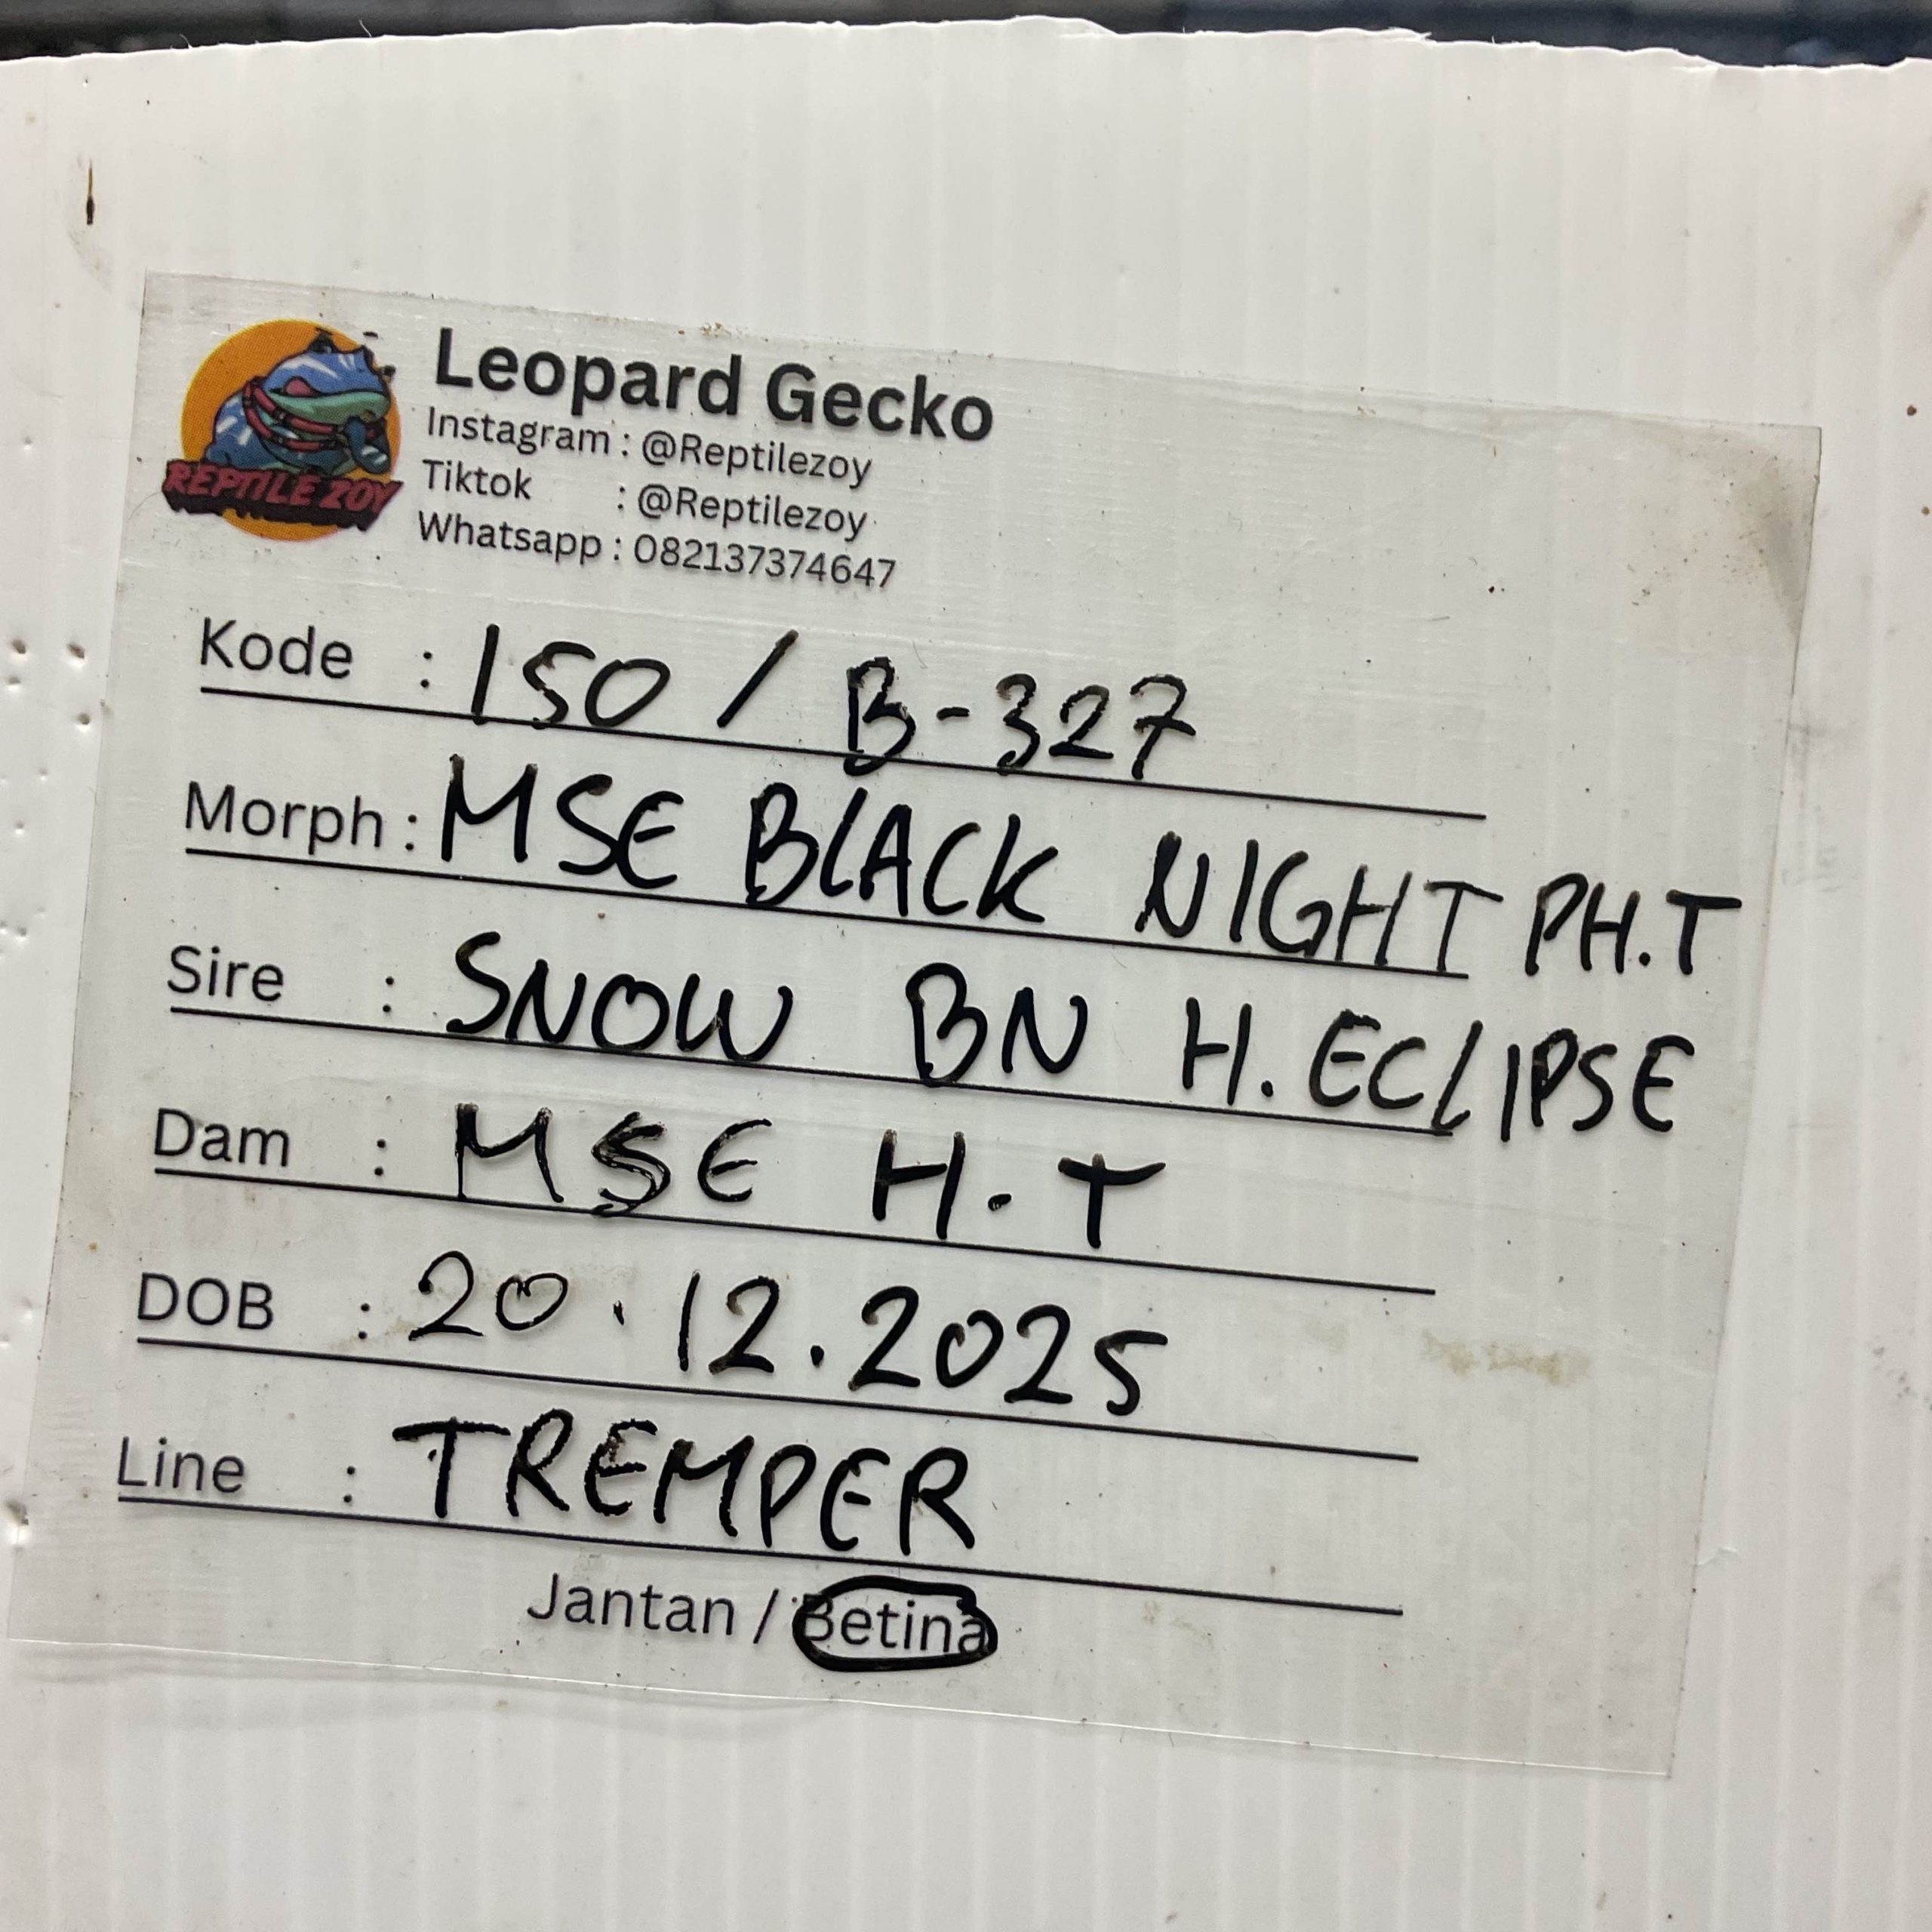 REPTILE ZOY
Leopard Gecko
Instagram : @Reptilezoy
Tiktok : @Reptilezoy
Whatsapp : 082137374647
Kode : 150 / B-327
Morph : MSE BLACK NIGHT PH.T
Sire : SNOW BN H. ECLIPSE
Dam : MSE H.T
DOB : 20.12.2025
Line : TREMPER
Jantan / Betina